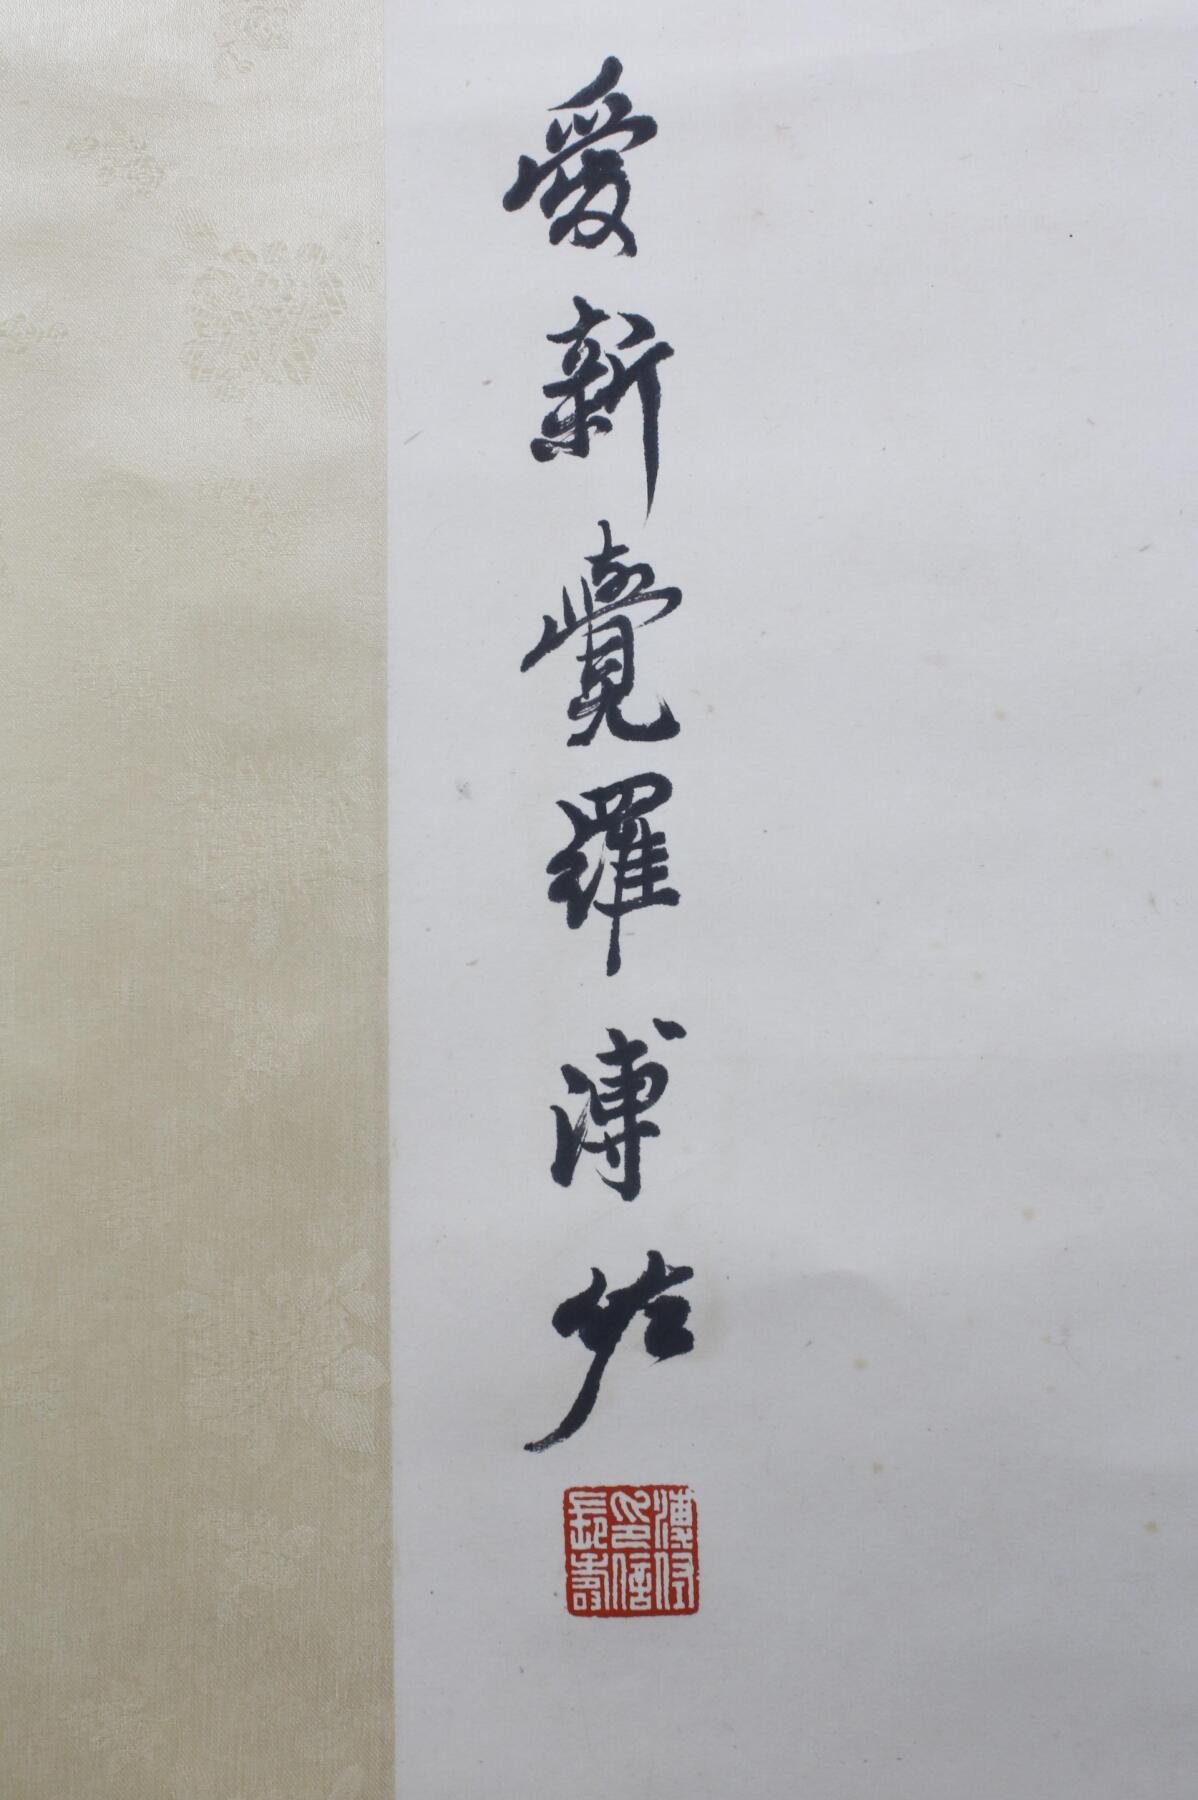 愛新覺羅溥佐
溥佐
印信
長壽